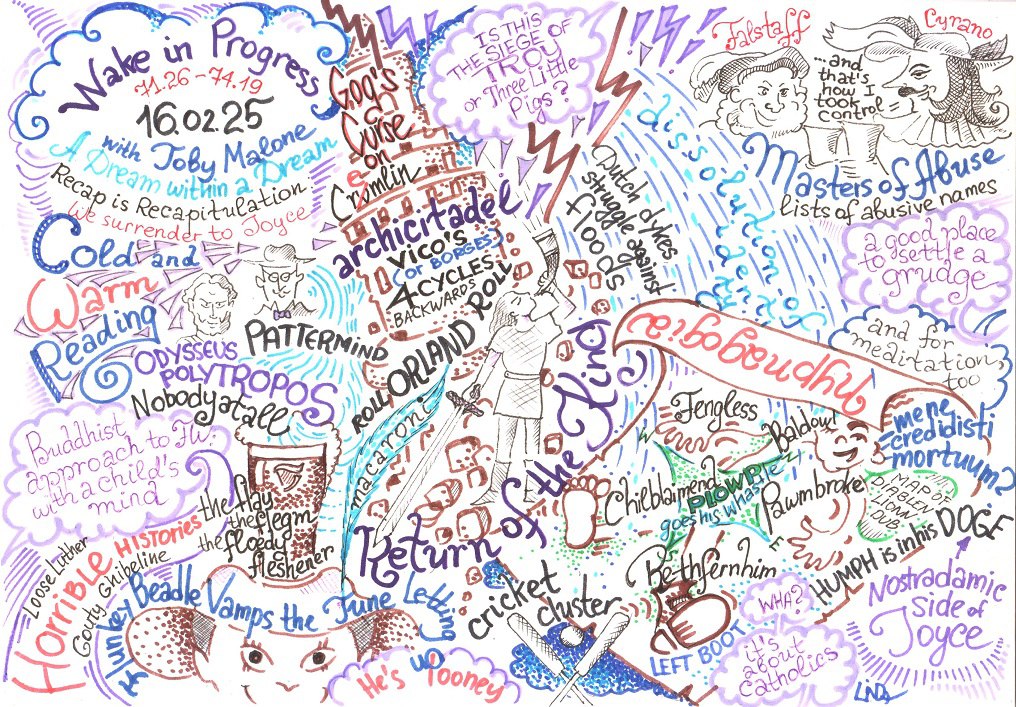 Wake in Progress
71.26 - 74.19
16.02.25
with Toby Malone
A Dream within a Dream
Recap is Recapitulation
We surrender to Joyce
Cold and
Warm
Reading
ODYSSEUS
POLYTROPOS
PATTERMIND
Nobodyatall
Buddhist
approach to FW:
with a child's
mind
the flay
the flegm
the floedy
fleshener
HORRIBLE HISTORIES
Loose Luther
Gouty Ghibeline
A Hunnkey Beadle Vamps the June Letting
up
He's Pooney
Gog's
a
Curse
on
Cromlin
e
archicitadel
VICO'S
(OR BORGES)
4 CYCLES
BACKWARDS
ROLL ORLAND ROLL
macaroni
IS THIS
THE SIEGE OF
TROY
or Three Little
Pigs?
Dutch dykes
struggle against
floods
dissolution
Return of the King
cricket
cluster
Falstaff
Cyrano
...and
that's
how I
took
control
Masters of Abuse
lists of abusive names
a good place
to settle a
grudge
and for
meditation,
too
hypnagogia
mene
credidisti
mortuum?
Fengless
Baldowl
Chieblamend
PLOWP
goes his whastle
Pawmbroke
Bethfernhim
MAP OF
DIABLEN
IONN
DUB
HUMPH IS in his DOGE
Nostradamic
side of
Joyce
WHA?
it's
about
catholics
LEFT BOOT
LiNDA